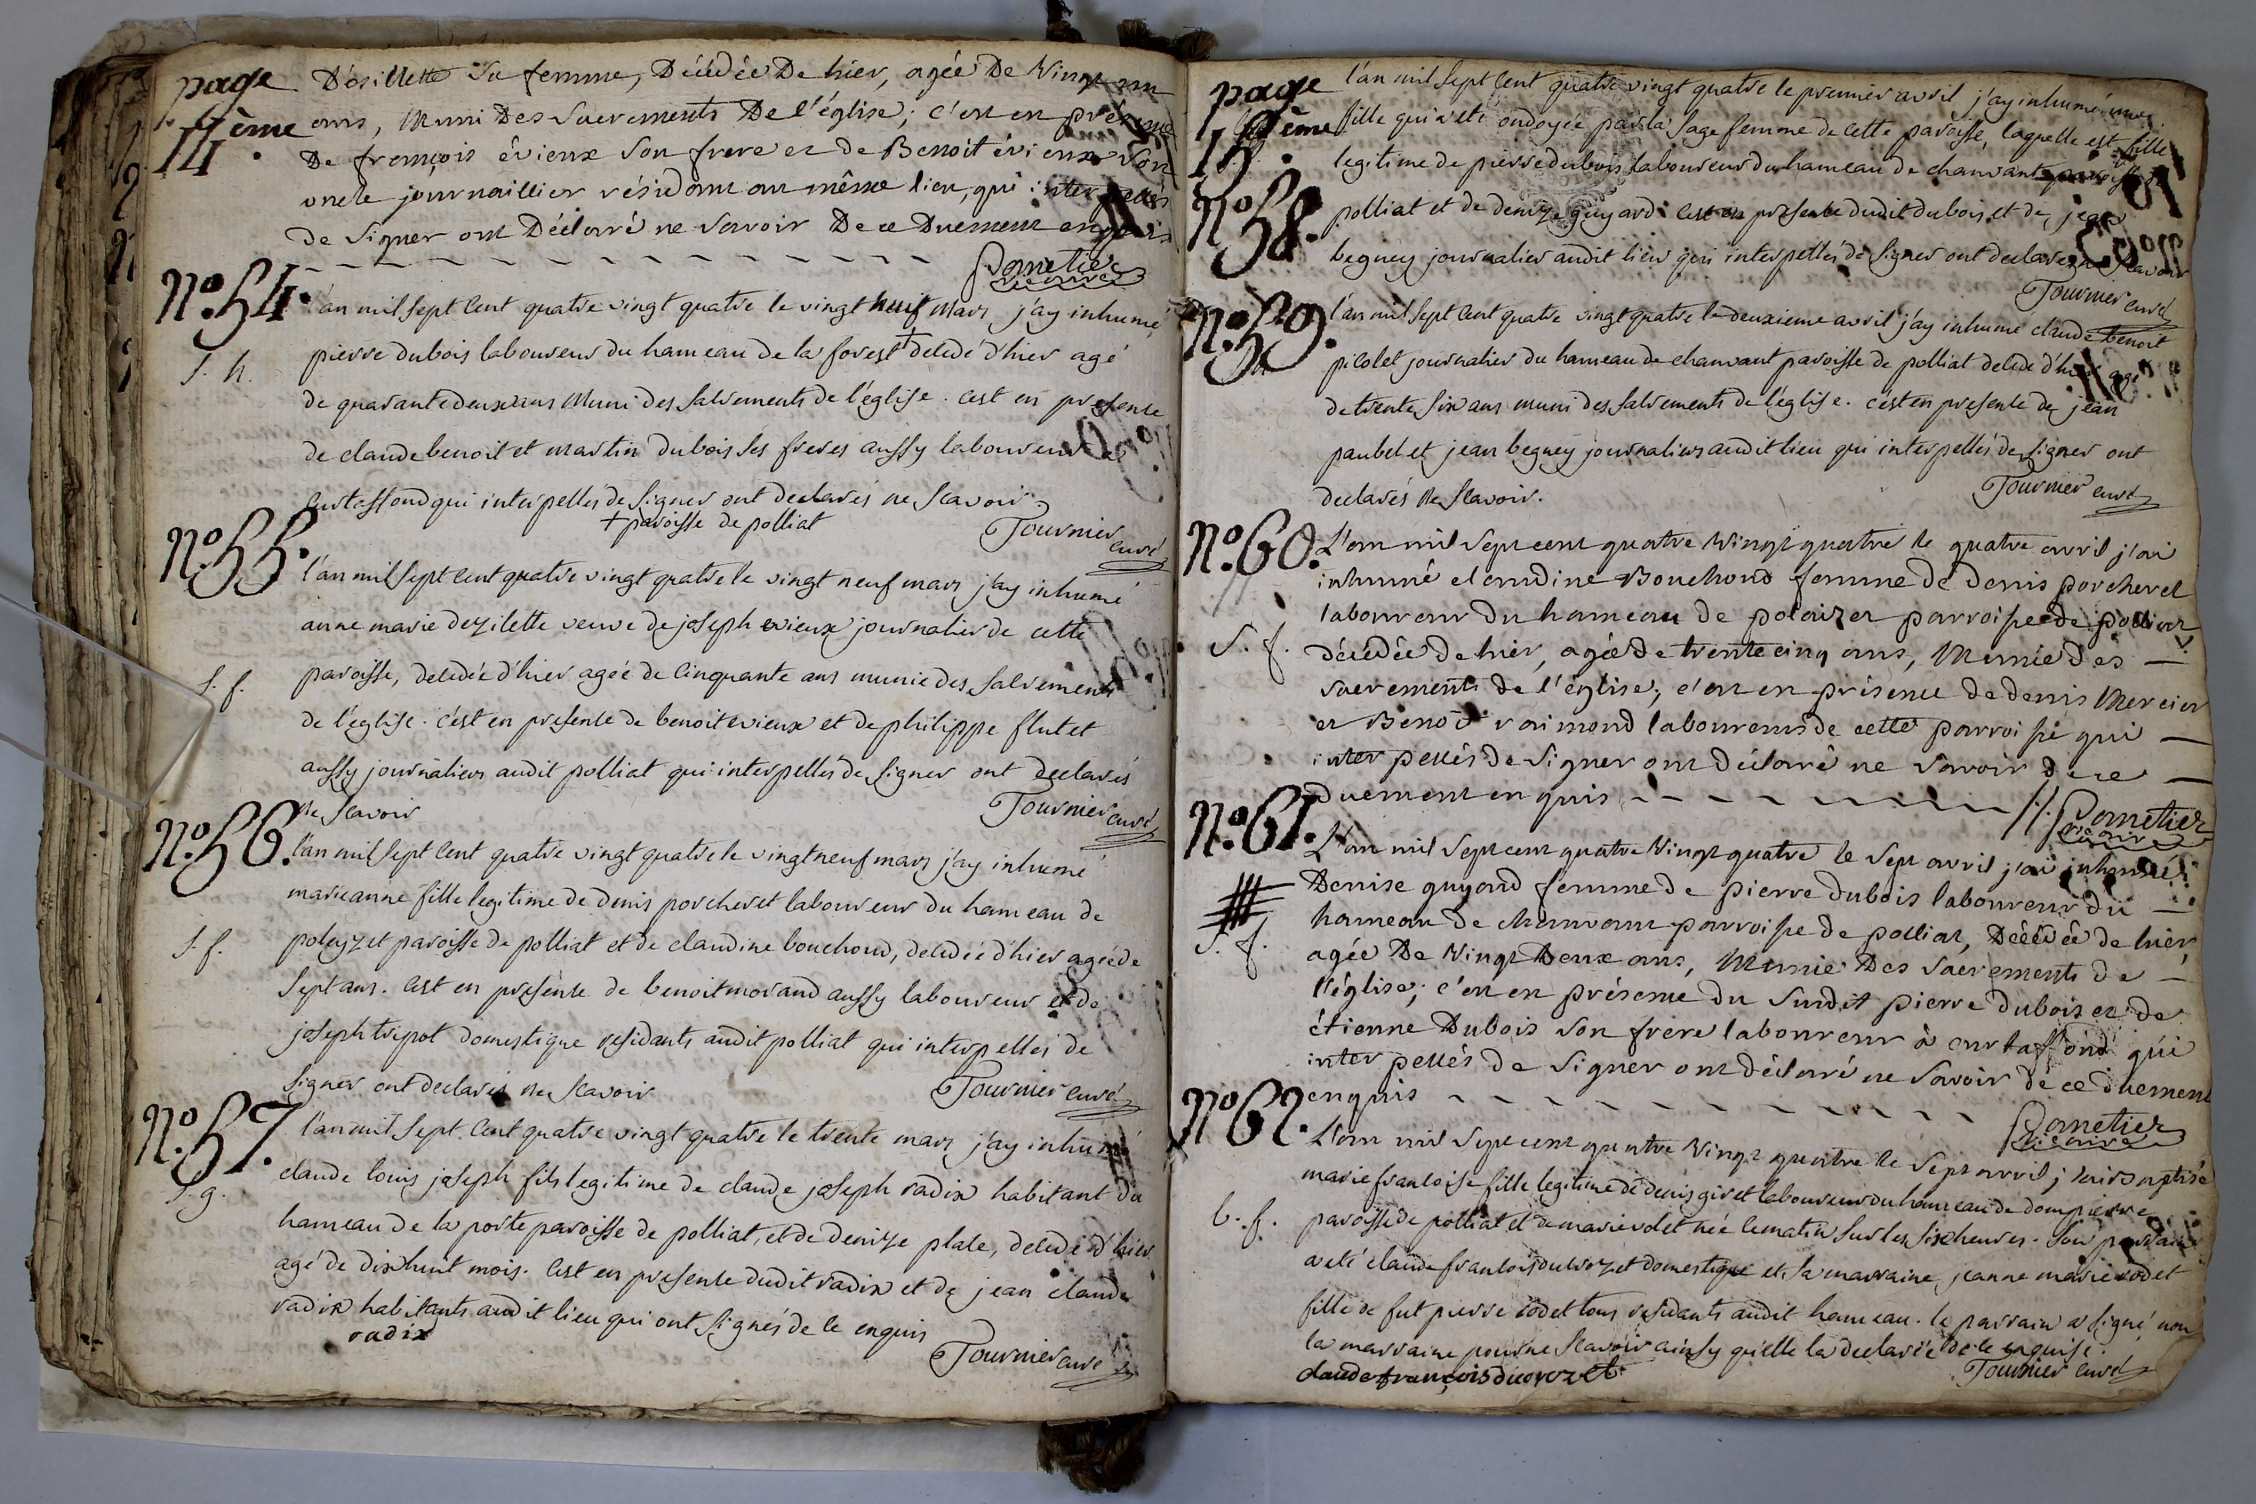 page
14 ème
Désillette sa femme, Décédée De hier, agée De Vingt un
ans, Muni Des sacrements De l'église; c'est en présence
De françois évieux son frere et de Benoit évieux son
oncle journaillier résidant au même lieu, qui interpellés
de signer ont Déclaré ne savoir De ce Duement enquis
Pometier
vicaire
N.º 54.
l'an mil sept cent quatre vingt quatre le vingt huit mars j'ay inhumé
s. h.
pierre dubois laboureur du hameau de la forest + decedé d'hier agé
de quarante deux ans muni des sacrements de l'église. c'est en presence
de claude benoit et martin dubois ses freres aussy laboureurs a
curtaffond qui interpellés de signer ont declarés ne scavoir
+ paroisse de polliat
Tournier curé
N.º 55.
l'an mil sept cent quatre vingt quatre le vingt neuf mars j'ay inhumé
anne marie dezilette veuve de joseph evieux journalier de cette
s. f.
paroisse, decedée d'hier agée de cinquante ans munie des sacrements
de l'église. c'est en presence de benoit evieux et de philippe flutet
aussy journaliers audit polliat qui interpellés de signer ont declarés
ne scavoir
Tournier curé
N.º 56.
l'an mil sept cent quatre vingt quatre le vingt neuf mars j'ay inhumé
marie anne fille legitime de denis porcheret laboureur du hameau de
s. f.
poleyzet paroisse de polliat et de claudine bouchoud, decedée d'hier agée de
sept ans. c'est en presence de benoit morand aussy laboureur et de
joseph tripot domestique residants audit polliat qui interpellés de
signer ont declarés ne scavoir
Tournier curé
N.º 57.
l'an mil sept cent quatre vingt quatre le trente mars j'ay inhumé
s. g.
claude louis joseph fils legitime de claude joseph radix habitant du
hameau de la porte paroisse de polliat, et de denize plate, decedé d'hier
agé de dix huit mois. c'est en presence dudit radix et de jean claude
radix habitants audit lieu qui ont signés de ce enquis
radix
Tournier curé
page
15 ème
l'an mil sept cent quatre vingt quatre le premier avril j'ay inhumé une
fille qui a eté ondoyée par la sage femme de cette paroisse, laquelle est fille
legitime de pierre dubois laboureur du hameau de chanvant paroisse de
N.º 58.
polliat et de denize guyard. c'est en presence dudit dubois et de jean
beguey journalier audit lieu qui interpellés de signer ont declarés ne scavoir
Tournier curé
N.º 59.
l'an mil sept cent quatre vingt quatre le deuxieme avril j'ay inhumé claude benoit
s. h.
picolet journalier du hameau de chanvant paroisse de polliat decedé d'hier agé
de trente six ans muni des sacrements de l'église. c'est en presence de jean
paubel et jean beguey journaliers audit lieu qui interpellés de signer ont
declarés ne scavoir.
Tournier curé
N.º 60.
L'an mil sept cent quatre Vingt quatre le quatre avril j'ai
inhumé claudine Bouchoud femme de denis porcheret
laboureur du hameau de polaizet parroisse de polliat
s. f.
décédée de hier, agée de trente cinq ans, Munie des
sacrements de l'église; c'est en présence de denis Mercier
et Benoit raimond laboureurs de cette parroisse qui
interpellés de signer ont déclaré ne savoir de ce
duement enquis
Pometier
vicaire
N.º 61.
L'an mil sept cent quatre Vingt quatre le sept avril j'ai inhumé
Denise guyond femme de pierre dubois laboureur du
s. f.
hameau de chanvant parroisse de polliat, Décédée de hier
agée De Vingt Deux ans, Munie Des sacrements de
l'église; c'est en présence du susdit pierre dubois et de
étienne Dubois son frere laboureur à curtaffond qui
interpellés de signer ont déclaré ne savoir de ce duement
enquis
Pometier
vicaire
N.º 62.
L'an mil sept cent quatre Vingt quatre le sept avril j'ai baptisé
marie francoise fille legitime de denis givet laboureur du hameau de dompierre
b. f.
paroisse de polliat et de marie volet née ce matin sur les six heures. son parrain
a eté claude francois ducrozet domestique et sa marraine jeanne marie rodet
fille de fut pierre rodet tous residants audit hameau. le parrain a signé non
la marraine pour ne scavoir ainsy qu'elle l'a declarée de ce enquise.
claude françois ducrozet
Tournier curé